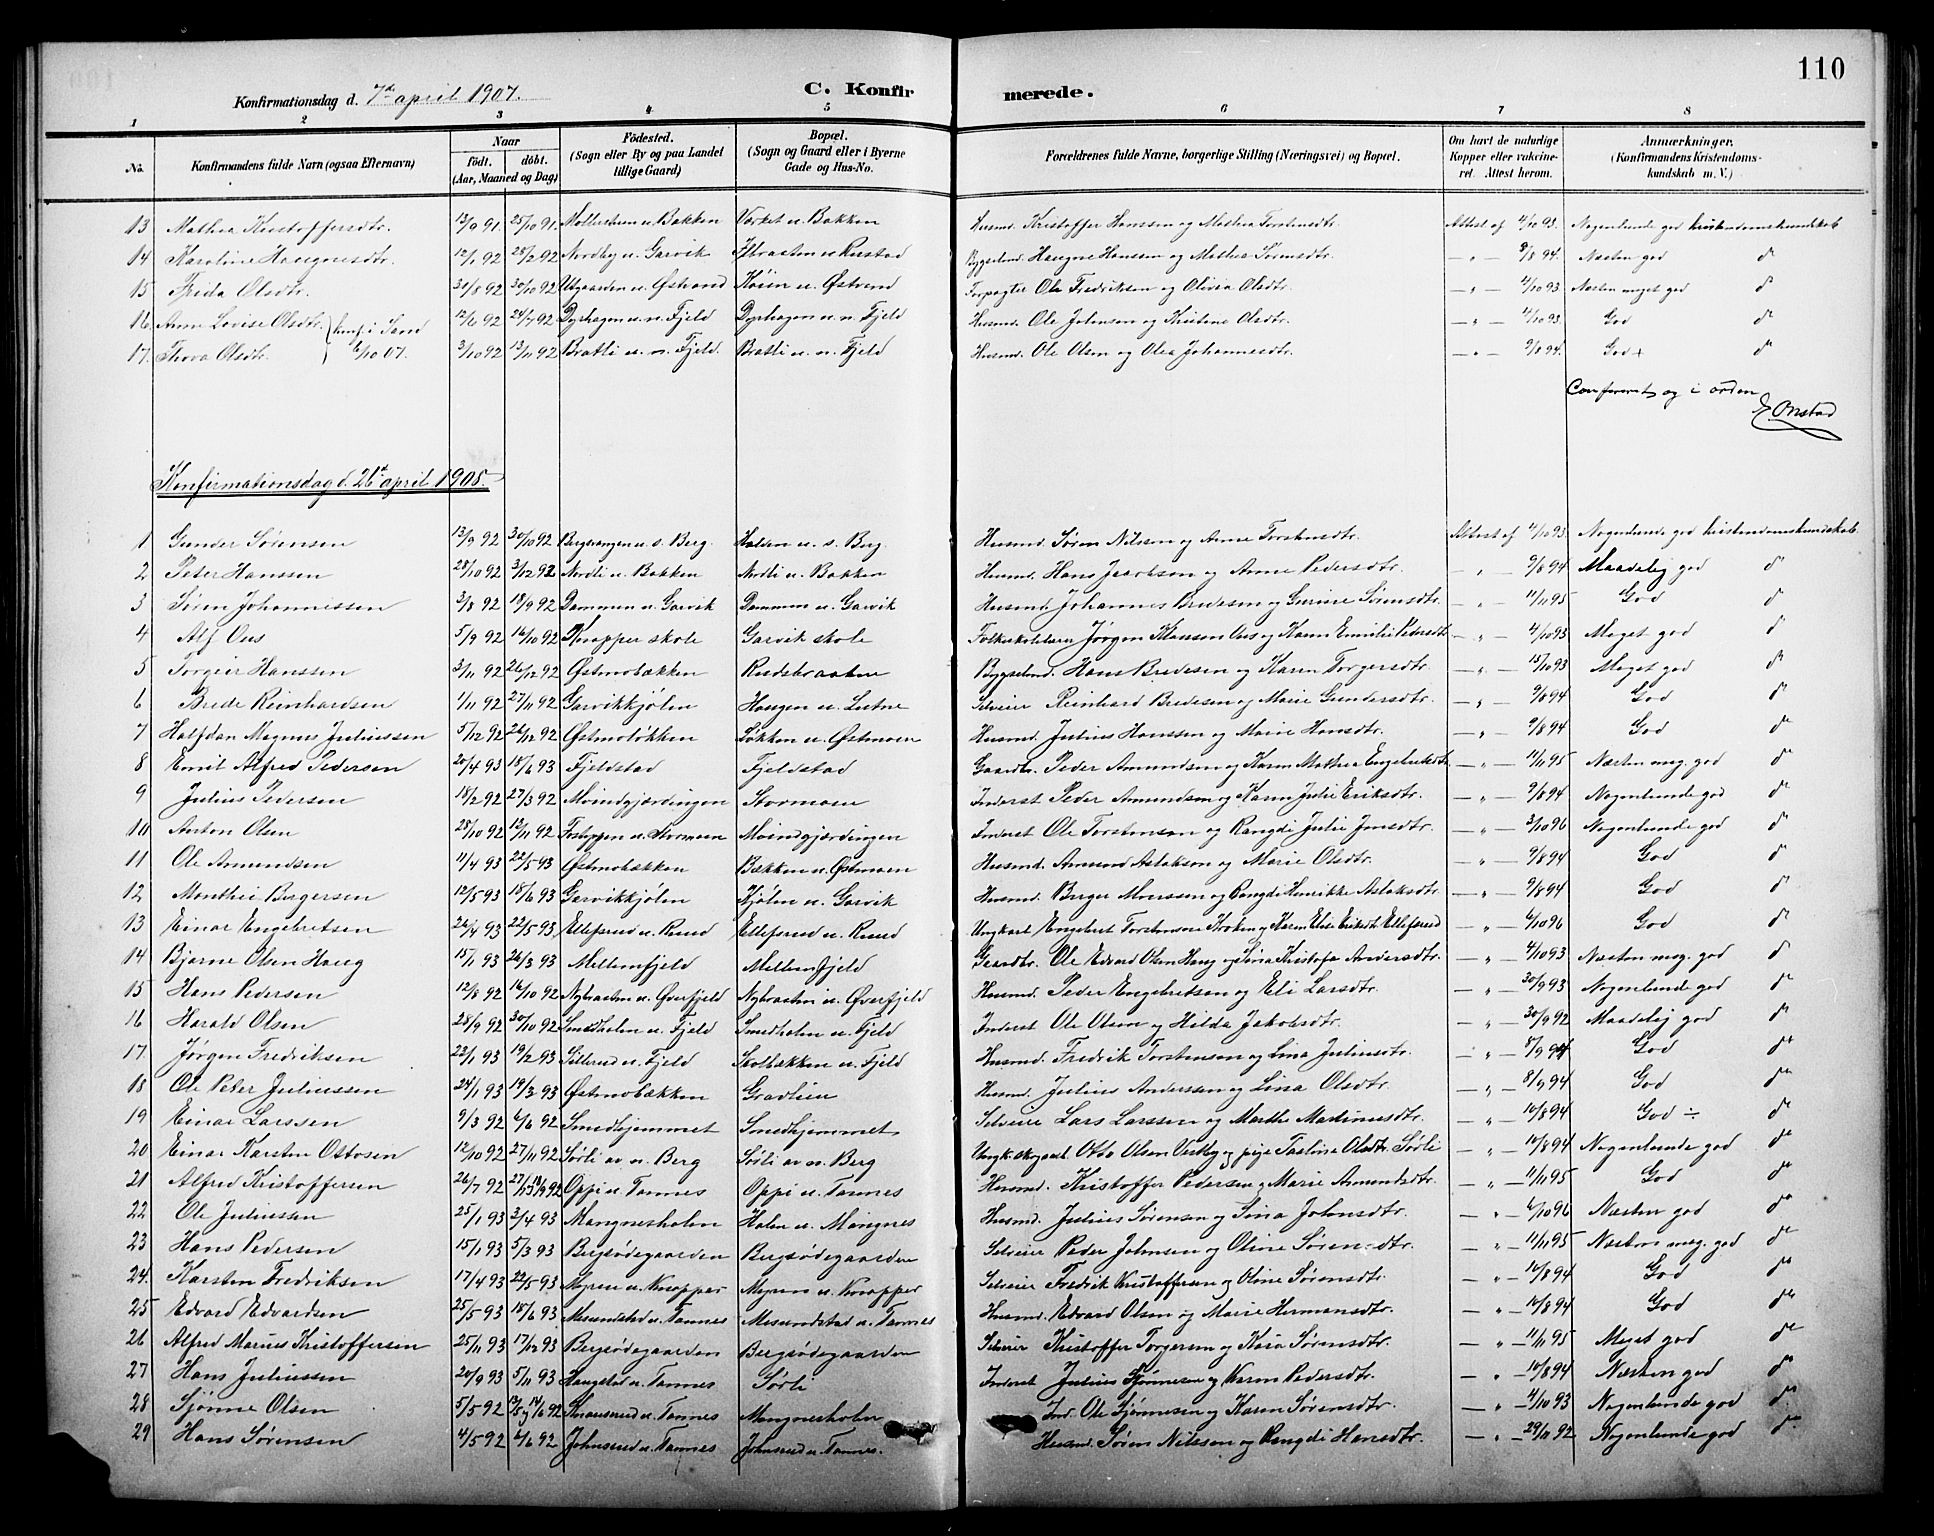 110
Konfirmationsdag d. 7de april 1907. C. Konfirmerede.
1 2 3 4 5 6 7 8
No. Konfirmandens fulde Navn (ogsaa Efternavn) Naar født. døbt. (Aar, Maaned og Dag) Födested. (Sogn eller By og paa Landet tillige Gaard) Bopæl. (Sogn og Gaard eller i Byerne Gade og Hus-No. Forældrenes fulde Navne, borgerlige Stilling (Næringsvei) og Bopæl. Om havt de naturlige Kopper eller vakcineret. Attest herom. Anmærkninger. (Konfirmandens Kristendomskundskab m. V.)
13 Mathea Kristoffersdtr. 13/9 91 25/10 91 u. Bakken Værket u. Bakken Husmd. Kristoffer Hanssen og Mathea Torstensdtr. Attest af 4/10 93. Nogenlunde god kristendomskundskab
14 Karoline Haagnesdtr. 12/1 92 28/2 92 Nordby u. Garvik u. Rustad Bygselmd. Haagne Hanssen og Mathea Sørensdtr. — " — 9/8 94. Næsten god do
15 Frida Olsdtr. 31/8 92 30/10 92 Utgaarden u. Østrand Køien u. Østrand Forpagter Ole Fredriksen og Olivia Olsdtr. — " — 4/10 93 Næsten meget god do
16 Anne Lovise Olsdtr. } konf. i Sand 12/6 92 24/7 92 Dyrhagen u. n. Fjeld Dyrhagen u. n. Fjeld Husmd. Ole Johnsen og Kristine Olsdtr. — " — 4/10 93. God do
17. Thora Olsdtr. } 6/10 07. 3/10 92 13/11 92 Bratli u. n. Fjeld. Bratli u. n. Fjeld Husmd. Ole Olsen og Olea Johannesdtr. — " — 9/8 94. God + do
Confereret og i orden
E Onstad
Konfirmationsdag d. 26de april 1908.
1 Gunder Sørensen 13/9 92 30/10 92 Bergsvangen u. s. Berg. Halden u. s. Berg. Husmd. Søren Nilssen og Anne Torstensdtr. Attest af 4/10 93. Nogenlunde god kristendomskundskab
2 Peter Hanssen 28/10 92 3/12 92 Nordli u. Bakken Nordli u. Bakken Husmd. Hans Jacobsen og Anne Pedersdtr. " — 9/8 94 Maadelig god do
3 Søren Johannessen 3/8 92 18/9 92 Dammen u. Garvik Dammen u. Garvik Husmd. Johannes Bredesen og Gurine Sørensdtr. — " — 11/11 95 God do
4 Alf Ous 5/9 92 16/10 92 Knapper skole Garvik skole Folkeskolelærer Jørgen Klausen Ous og Karen Emilie Pedersdtr — " — 4/10 93 Meget god do
5 Torgeir Hanssen 3/11 92 26/12 92 Østmobækken Rudsbraaten Bygselmd. Hans Bredesen og Karen Torgersdtr. — " — 15/10 93 Meget god do
6 Brede Reinhardsen 1/11 92 27/11 92 Garvikkjølen Haugen u. Lutne Selveier Reinhard Bredesen og Marie Gundersdtr. — " — 9/8 94 God do
7 Halfdan Magnus Juliussen 5/12 92 26/12 92 Østmoløkken Løkken u. Østmoen Husmd. Julius Hanssen og Marie Hansdtr. — " — 9/8 94 God do
8 Emil Alfred Pedersen 20/4 93 18/6 93 Fjeldstad Fjeldstad Gaardbr. Peder Amundsen og Karen Mathea Engebretsdtr — " — 11/11 95 Næsten meg. god do
9 Julius Pedersen 18/2 92 27/3 92 Moindgjærdingen Stormoen Inderst Peder Amundsen og Karen Julie Eriksdtr. — " — 9/8 94 Nogenlunde god do
10 Anton Olsen 28/10 92 13/11 92 u. Stormoen Moindgjærdingen Inderst Ole Torstensen og Rangdi Julie Jensdtr. — " — 3/10 96 Nogenlunde god do
11 Ole Amundsen 11/4 93 22/5 93 Østmobækken Bækken u. Østmoen Husmd. Amund Aslaksen og Marie Olsdtr. — " — 9/8 94 God do
12 Monthei Bergersen 12/5 93 18/6 93 Garvikkjølen Kjølen u. Garvik Husmd. Berger Monssen og Rangdi Henrikke Aslaksdtr — " — 9/8 94 God do
13 Einar Engebretsen 26/4 93 22/5 93 Ellefsrud u. Ruud Ellefsrud u. Ruud Ungkarl Engebret Torstensen Kroken og Karen Elise Eriksdtr Ellefsrud — " — 6/10 96 God do
14 Bjarne Olsen Haug 15/1 93 26/3 93 Mellemfjeld Mellemfjeld Gaardbr. Ole Edvard Olsen Haug og Sina Kristofa Andersdtr. — " — 4/10 93 Næsten meg. god do
15 Hans Pedersen 12/8 92 16/10 92 Nybraaten u. Øverfjeld Nybraaten u. Øverfjeld Husmd. Peder Engebretsen og Eli Larsdtr. — " — 30/9 93 Nogenlunde god do
16 Harald Olsen 28/9 92 30/10 92 Smedholen u. Fjeld Smedholen u. Fjeld Inderst Ole Olsen og Hilda Jakobsdtr. " — 30/9 92 Maadelig god do
17. Jørgen Fredriksen 22/1 93 19/2 93 Sillerud u. Fjeld Skolbækken u. Fjeld Husmd. Fredrik Torstensen og Lina Juliusdtr. — " — 8/9 94 God do
18 Ole Peter Juliussen 24/1 93 19/3 93 Østmobækken Gradlien Husmd. Julius Andersen og Lina Olsdtr. — " — 8/9 94 God do
19 Einar Larssen 9/3 92 6/6 92 Smedhjemmet Smedhjemmet Selveier Lars Larssen og Marthe Madinusdtr. — " — 10/8 94 God ÷ do
20 Einar Karsten Ottosen 12/10 92 27/11 92 Sørli av n. Berg Sørli av n. Berg Ungk. Otto Olsen Vestby og pige Tastine Olsdtr. Sørli — " — 10/8 94 Nogenlunde god do
21 Alfred Kristoffersen 26/7 92 Oppi u. Tannes Oppi u. Tannes Husmd. Kristoffer Pedersen og Marie Amundsdtr. — " — 11/11 95 God do
22 Ole Juliussen 25/1 93 3/4 93 Mangnesholen Holen u. Mangnes Husmd. Julius Sørensen og Sina Johnsdtr. — " — 6/10 96 Næsten god do
23 Hans Pedersen 15/1 93 5/3 93 Bergsødegaarden Bergsødegaarden Selveier Peder Johnsen og Oline Sørensdtr. " — 11/11 95 Næsten meg. god do
24. Karsten Fredriksen 17/4 93 22/5 93 Myren u. Knapper Myren u. Knapper Selveier Fredrik Kristoffersen og Oline Sørensdtr. " — 10/8 94 God do
25 Edvard Edvardsen 25/5 93 18/6 93 Mesundstad u. Tannes Mesundstad u. Tannes Husmd. Edvard Olsen og Marie Hermansdtr. " — 10/8 94 God do
26 Alfred Marius Kristoffersen 25/11 93 17/12 93 Bergsødegaarden Bergsødegaarden Selveier Kristoffer Torgersen og Kaia Sørensdtr. — " — 11/11 95 Meget god do
27 Hans Juliussen 20/9 93 5/11 93 Haugstad u. Tannes Sørli Inderst Julius Sjønnesen og Karen Pedersdtr. — " — 10/8 94 Næsten god do
28 Sjønne Olsen 5/5 92 u. Tannes Mangnesholen Ind. Ole Sjønnesen og Karen Sørensdtr. — " — 4/10 93 Nogenlunde god do
29 Hans Sørensen 4/5 92 6/6 92 Johnsrud u. Tannes Johnsrud u. Tannes. Husmd. Søren Nilssen og Rangdi Hansdtr. — " — 29/11 92 Nogenlunde god do